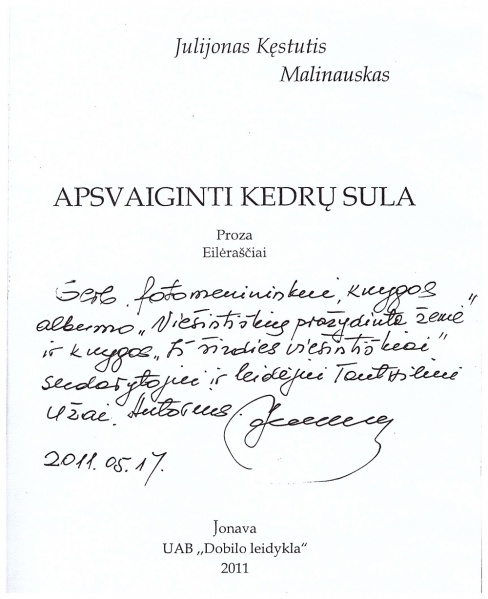 Julijonas Kęstutis
Malinauskas
APSVAIGINTI KEDRŲ SULA
Proza
Eilėraščiai
Gerb. fotomenininkui, knygos
albumo „Viešintiškių pražydinta žemė"
ir knygos „Iš širdies viešintiškiai"
sudarytojui ir leidėjui
Užai. Autorius.
2011.05.17.
Jonava
UAB ,,Dobilo leidykla"
2011